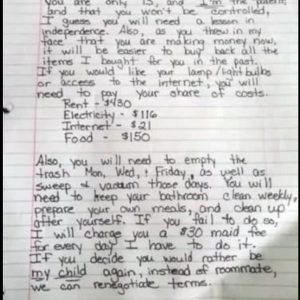 You are only 13, and I'm the parent,
and that you won't be controlled,
I guess you will need a lesson in
independence. Also, as you threw in my
face that you are making money now,
it will be easier to buy back all the
items I bought for you in the past.
If you would like your lamp/lightbulbs
or access to the internet, you will
need to pay your share of costs.
Rent - $430
Electricity - $116
Internet - $21
Food - $150
Also, you will need to empty the
trash Mon, Wed, & Friday, as well as
sweep & vacuum those days. You will
need to keep your bathroom clean weekly,
prepare your own meals, and clean up
after yourself. If you fail to do so,
I will charge you a $30 maid fee
for every day I have to do it.
If you decide you would rather be
my child again, instead of roommate,
we can renegotiate terms.